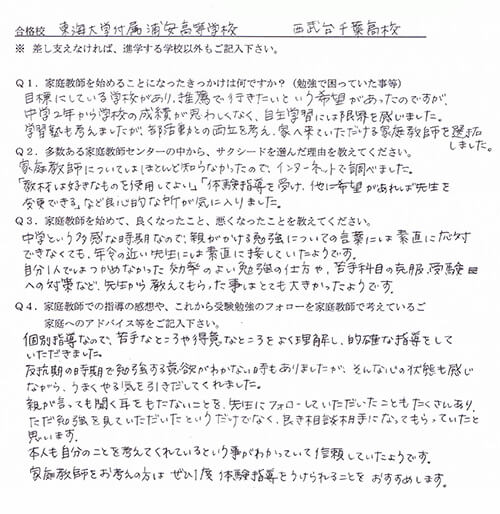 合格校 東海大学付属浦安高等学校 西武台千葉高校
※ 差し支えなければ、進学する学校以外もご記入下さい。
Q1. 家庭教師を始めることになったきっかけは何ですか?(勉強で困っていた事等)
目標にしている学校があり、推薦で行きたいという希望があったのですが、
中学2年から学校の成績が思わしくなく、自主学習には限界を感じました。
学習塾も考えましたが、部活動との両立を考え、家へ来ていただける家庭教師を選択
しました。
Q2. 多数ある家庭教師センターの中から、サクシードを選んだ理由を教えてください。
家庭教師についてはほとんど知らなかったので、インターネットで調べました。
「教材は好きなものを使用してよい」「体験指導を受け、他に希望があれば先生を
変更できる」など良心的な所が気に入りました。
Q3. 家庭教師を始めて、良くなったこと、悪くなったことを教えてください。
中学という多感な時期なので、親がかける勉強についての言葉には素直に応対
できなくても、年令の近い先生には素直に接していたようです。
自分1人ではつかめなかった効率のよい勉強の仕方や、苦手科目の克服、受験
への対策など、先生から教えてもらった事はとても大きかったようです。
Q4. 家庭教師での指導の感想や、これから受験勉強のフォローを家庭教師で考えているご
家庭へのアドバイス等をご記入下さい。
個別指導なので、苦手なところや得意なところをよく理解し、的確な指導をして
いただきました。
反抗期の時期で勉強する意欲がわかない時もありましたが、そんな心の状態も感じ
ながら、うまくやる気を引きだしてくれました。
親が言っても聞く耳をもたないことを、先生にフォローしていただいたこともたくさんあり、
ただ勉強を見ていただいたというだけでなく、良き相談相手になってもらっていたと
思います。
本人も自分のことを考えてくれているという事がわかっていて信頼していたようです。
家庭教師をお考えの方は ぜひ1度 体験指導をうけられることを おすすめします。